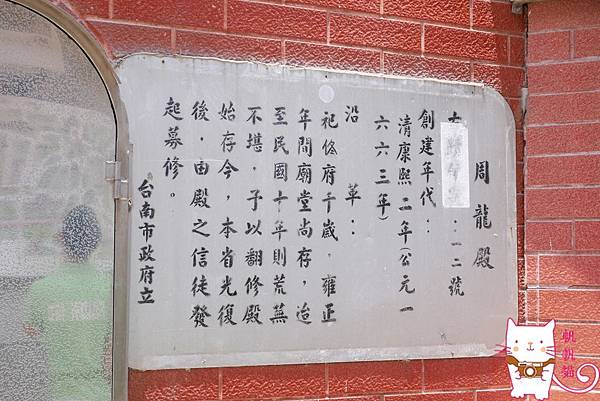 周龍殿
：一二號
創建年代：
清康熙二年(公元一
六六三年)
沿革：
祀倏府千歲，雍正
年間廟堂尚存，迨
至民國十年則荒蕪
不堪，予以翻修殿
始存今，本省光復
後，由殿之信徒發
起募修。
台南市政府立
帆帆貓